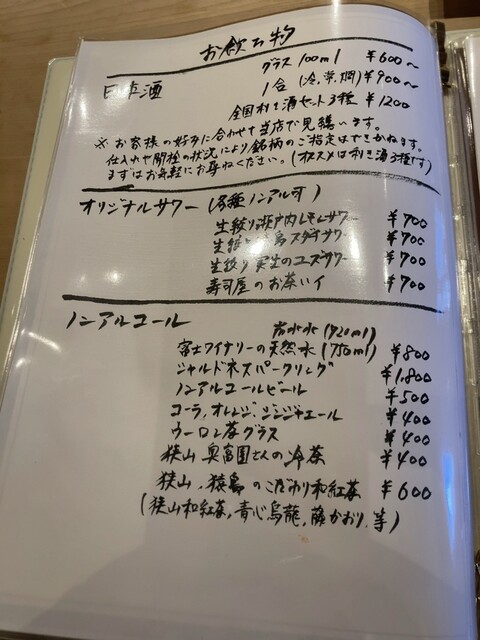 お飲み物
日本酒 グラス 100ml ¥600～
1合 (冷,常,燗) ¥900～
全国利き酒セット3種 ¥1200
※お客様の好みに合わせて当店で見繕います。
仕入れや開栓の状況により銘柄のご指定はできかねます。
まずはお気軽にお尋ねください。(オススメは利き酒3種です)
オリジナルサワー (各種ノンアル可)
生絞り瀬戸内レモンサワー ¥700
生絞り 島スダチサワー ¥700
生絞り実生のユズサワー ¥700
寿司屋のお茶ハイ ¥700
ノンアルコール
水 (720ml)
富士ワイナリーの天然水 (750ml) ¥800
シャルドネスパークリング ¥1,800
ノンアルコールビール ¥500
コーラ,オレンジ,ジンジャエール ¥400
ウーロン茶グラス ¥400
狭山 奥富園さんの冷茶 ¥400
狭山,猿島のこだわり和紅茶 ¥600
(狭山和紅茶,青心烏龍,藤かおり,等)